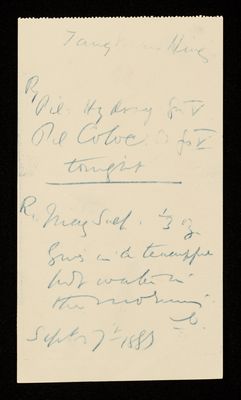 R
Pil. Hydrarg gr V
Pil Coloc. gr V
tonight
R. Mag Sulf. ½ oz
Give in a teacupful
hot water in
the morning
Sept 7th 188